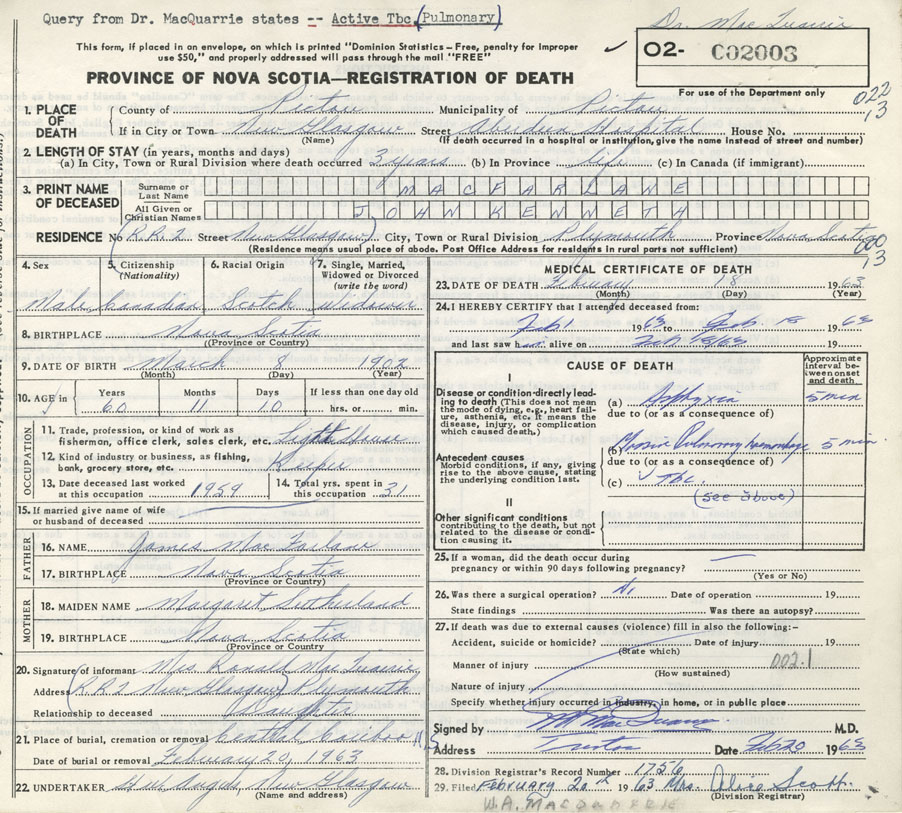 Query from Dr. MacQuarrie states -- Active Tbc. (Pulmonary)
This form, if placed in an envelope, on which is printed "Dominion Statistics - Free, penalty for improper
use $50," and properly addressed will pass through the mail "FREE"
PROVINCE OF NOVA SCOTIA—REGISTRATION OF DEATH
O2- C02003
For use of the Department only
022
13
1. PLACE OF DEATH County of Pictou Municipality of Pictou
If in City or Town New Glasgow Street Aberdeen Hospital House No.
(Name) (If death occurred in a hospital or institution, give the name instead of street and number)
2. LENGTH OF STAY (in years, months and days)
(a) In City, Town or Rural Division where death occurred 3 years (b) In Province life (c) In Canada (if immigrant)
3. PRINT NAME OF DECEASED
Surname or Last Name MACFARLANE
All Given or Christian Names JOHN KENNETH
RESIDENCE No (R.R.2 Street New Glasgow) City, Town or Rural Division Plymouth Province Nova Scotia
(Residence means usual place of abode. Post Office Address for residents in rural parts not sufficient)
000
13
4. Sex 5. Citizenship (Nationality) 6. Racial Origin 7. Single, Married, Widowed or Divorced (write the word)
Male Canadian Scotch widower
8. BIRTHPLACE Nova Scotia
(Province or Country)
9. DATE OF BIRTH March 8 1902
(Month) (Day) (Year)
10. AGE in Years Months Days If less than one day old
60 11 10 hrs. or min.
OCCUPATION
11. Trade, profession, or kind of work as
fisherman, office clerk, sales clerk, etc. Light House
12. Kind of industry or business, as fishing,
bank, grocery store, etc. Keeper
13. Date deceased last worked at this occupation 1959 14. Total yrs. spent in this occupation 31
15. If married give name of wife
or husband of deceased
FATHER
16. NAME James MacFarlane
17. BIRTHPLACE Nova Scotia
(Province or Country)
MOTHER
18. MAIDEN NAME Margaret Sutherland
19. BIRTHPLACE Nova Scotia
(Province or Country)
20. Signature of informant Mrs Ronald MacQuarrie
Address (R.R.2 New Glasgow) Plymouth
Relationship to deceased Daughter
21. Place of burial, cremation or removal Central Caribou
Date of burial or removal February 20, 1963
22. UNDERTAKER New Glasgow
(Name and address)
MEDICAL CERTIFICATE OF DEATH
23. DATE OF DEATH February 18 1963
(Month) (Day) (Year)
24. I HEREBY CERTIFY that I attended deceased from:
Feb 1 1963 to Feb. 18 1963
and last saw h alive on Feb 18/63 19
CAUSE OF DEATH
Approximate interval between onset and death
I
Disease or condition directly leading to death (This does not mean
the mode of dying, e.g., heart failure,
asthenia, etc. It means the
disease, injury, or complication
which caused death.)
(a) Asphyxia 5 min
due to (or as a consequence of)
Antecedent causes
Morbid conditions, if any, giving
rise to the above cause, stating
the underlying condition last.
(b) Massive Pulmonary hemorrhage 5 min.
due to (or as a consequence of)
(c) Tbc.
(See above)
II
Other significant conditions
contributing to the death, but not
related to the disease or condition causing it.
25. If a woman, did the death occur during
pregnancy or within 90 days following pregnancy?
(Yes or No)
26. Was there a surgical operation? No Date of operation 19
State findings Was there an autopsy?
27. If death was due to external causes (violence) fill in also the following:-
Accident, suicide or homicide? Date of injury 19
(State which)
Manner of injury 002.1
(How sustained)
Nature of injury
Specify whether injury occurred in industry, in home, or in public place
Signed by MacQuarrie M.D.
Address Trenton Date Feb 20 1963
28. Division Registrar's Record Number 1756
29. Filed February 20th 1963 Mrs. Alice Scott
(Division Registrar)